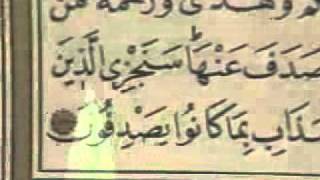 وَهُدًى وَرَحْمَةٌ فَمَنْ
صَدَفَ عَنْهَا سَنَجْزِي الَّذِينَ
بِمَا كَانُوا يَصْدِفُونَ